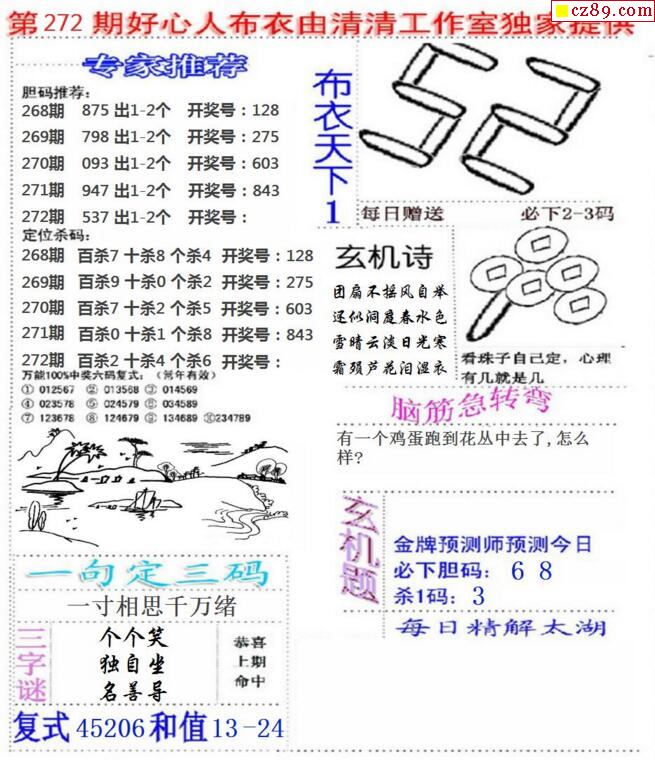 cz89.com
第272期好心人布衣由清清工作室独家提供
专家推荐
胆码推荐:
268期 875 出1-2个 开奖号:128
269期 798 出1-2个 开奖号:275
270期 093 出1-2个 开奖号:603
271期 947 出1-2个 开奖号:843
272期 537 出1-2个 开奖号:
定位杀码:
268期 百杀7 十杀8 个杀4 开奖号:128
269期 百杀9 十杀0 个杀2 开奖号:275
270期 百杀7 十杀2 个杀5 开奖号:603
271期 百杀0 十杀1 个杀8 开奖号:843
272期 百杀2 十杀4 个杀6 开奖号:
万能100%中奖六码复式:(常年有效)
① 012567 ② 013568 ③ 014569
④ 023578 ⑤ 024579 ⑥ 034589
⑦ 123678 ⑧ 124679 ⑨ 134689 ⑩234789
一句定三码
一寸相思千万绪
三字谜
个个笑
独自坐
名善导
恭喜
上期
命中
复式 45206 和值 13-24
布衣天下1
52
每日赠送 必下2-3码
玄机诗
团扇不摇风自举
还似洞庭春水色
雪晴云淡日光寒
霜殒芦花泪湿衣
看珠子自己定,心理
有几就是几
脑筋急转弯
有一个鸡蛋跑到花丛中去了,怎么
样?
玄机题
金牌预测师预测今日
必下胆码: 6 8
杀1码: 3
每日精解太湖